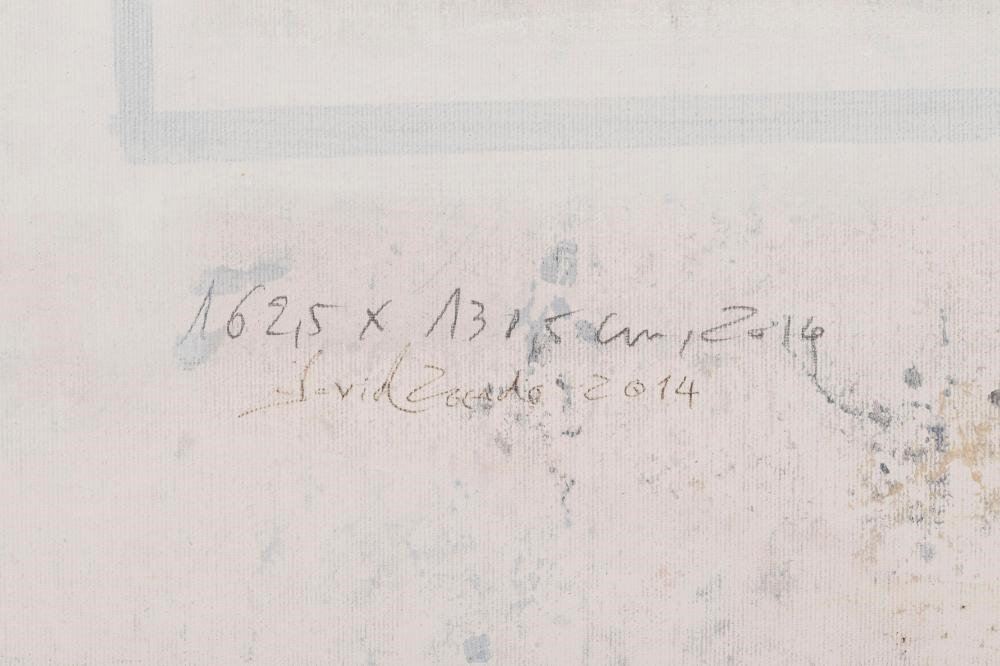 162,5 x 131,5 cm, 2014
David 2014